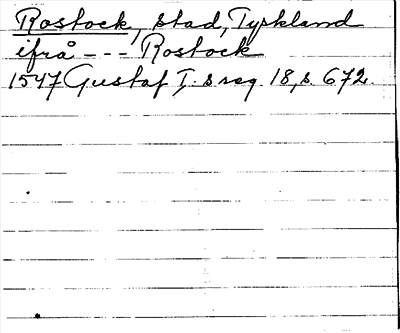 Rostock, stad, Tyskland
ifrå --- Rostock
1547 Gustaf I:s reg. 18, s. 672.